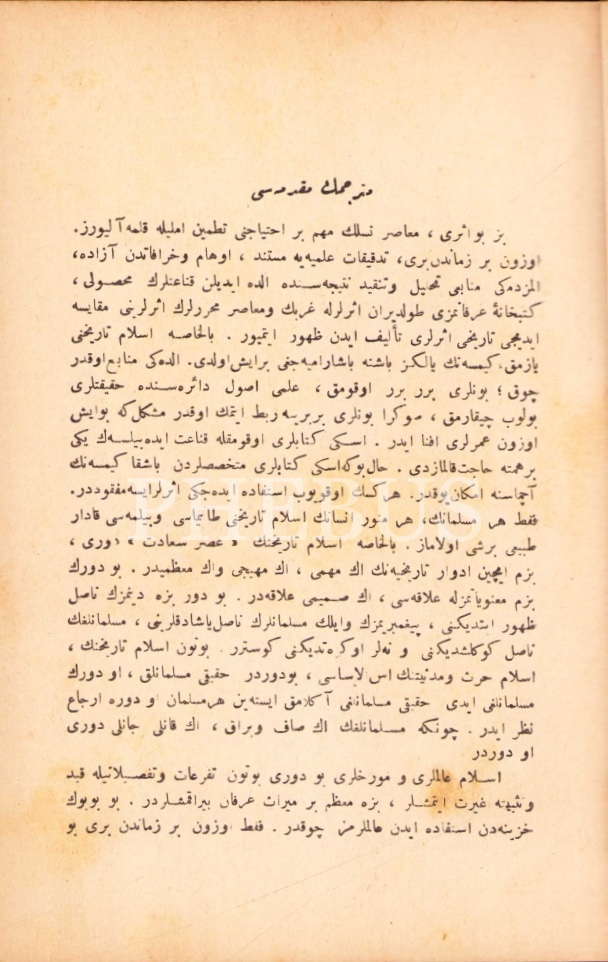 مترجمك مقدمه‌سی
بز بو اثری ، معاصر نسلك مهم بر احتیاجنی تطمین املیله قلمه آلیورز.
اوزون بر زماندن‌بری، تدقیقات علمیه‌یه مستند ، اوهام وخرافاتدن آزاده،
المزده‌كی منابعی تحلیل وتنقید نتیجه‌سنده الده ایدیلن قناعتلرك محصولی ،
كتبخانهٔ عرفانمزی طولدیران اثرلرله غربك ومعاصر محررلرك اثرلرینی مقایسه
ایدیجی تاریخی اثرلری تألیف ایدن ظهور ایتمیور . بالخاصه اسلام تاریخنی
یازمق، كیمسه‌نك یالكز باشنه باشارامیه‌جغی برایش‌اولدی. الده‌كی منابع اوقدر
چوق ؛ بونلری برر برر اوقومق ، علمی اصول دائره‌سنده حقیقتلری
بولوب چیقارمق ، صوكرا بونلری بربرینه ربط ایتمك اوقدر مشكل‌كه بوایش
اوزون عمرلری افنا ایدر . اسكی كتابلری اوقومقله قناعت ایده‌بیلسه‌ك یكی
برهمته حاجت‌قالمازدی . حال‌بوكه‌اسكی كتابلری متخصصلردن باشقا كیمسه‌نك
آچماسنه امكان‌یوقدر. هركسك اوقویوب استفاده ایده‌جكی اثرلرایسه‌مفقوددر.
فقط هر مسلمانك، هر منور انسانك اسلام تاریخنی طانیماسی وبیلمه‌سی قادار
طبیعی برشی اولاماز . بالخاصه اسلام تاریخنك « عصر سعادت » دوری ،
بزم ایچین ادوار تاریخیه‌نك اك مهمی ، اك مهیجی واك معظمیدر . بو دورك
بزم معنویاتمزله علاقه‌سی ، اك صمیمی علاقه‌در . بو دور بزه دینمزك ناصل
ظهور ایتدیكنی ، پیغمبریمزك وایلك مسلمانلرك ناصل‌یاشادقلرینی ، مسلمانلغك
ناصل كوكلشدیكنی و نه‌لر اوكره‌تدیكنی كوسترر . بوتون اسلام تاریخنك ،
اسلام حرث ومدنیتنك اس‌الاساسی ، بودوردر حقیقی مسلمانلق ، او دورك
مسلمانلغی ایدی حقیقی مسلمانلغی آكلامق ایسته‌ین هرمسلمان او دوره ارجاع
نظر ایدر . چونكه مسلمانلغك اك صاف وبراق ، اك قانلی جانلی دوری
او دوردر
اسلام عالملری و مورخلری بو دوری بوتون تفرعات وتفصیلاتیله قید
وتثبیته غیرت ایتمشلر ، بزه معظم بر میراث عرفان بیراقمشلردر . بو بویوك
خزینه‌دن استفاده ایدن عالملرمز چوقدر . فقط اوزون بر زماندن بری بو
PHEBUS